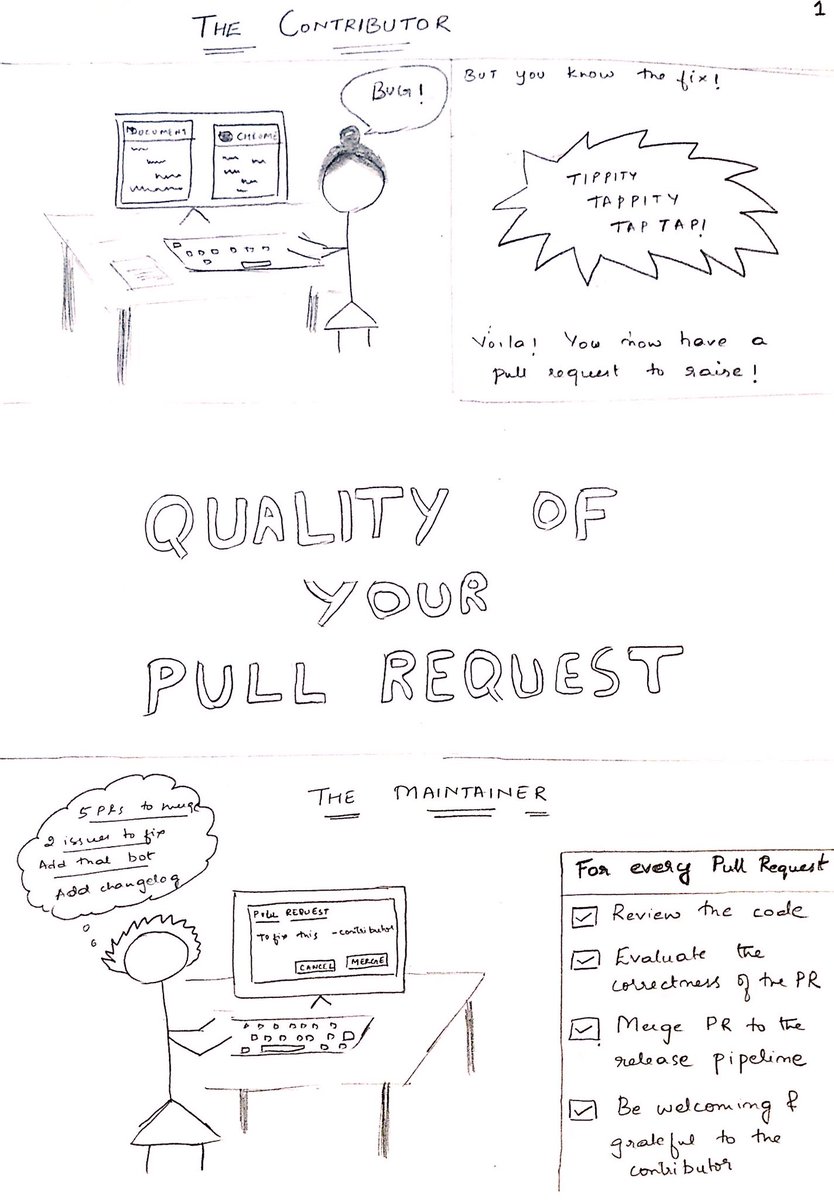 1
THE CONTRIBUTOR
BUG!
DOCUMENT
CHROME
BUT you know the fix!
TIPPITY
TAPPITY
TAP TAP!
Voila! You now have a
pull request to raise!
QUALITY OF
YOUR
PULL REQUEST
THE MAINTAINER
5 PRs to merge
2 issues to fix
Add that bot
Add changelog
PULL REQUEST
To fix this -contributor
CANCEL
MERGE
For every Pull Request
Review the code
Evaluate the
correctness of the PR
Merge PR to the
release pipeline
Be welcoming &
grateful to the
contributor